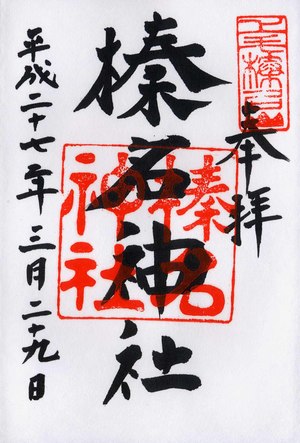 奉拝
榛名神社
榛名
神社
平成二十七年三月二十九日